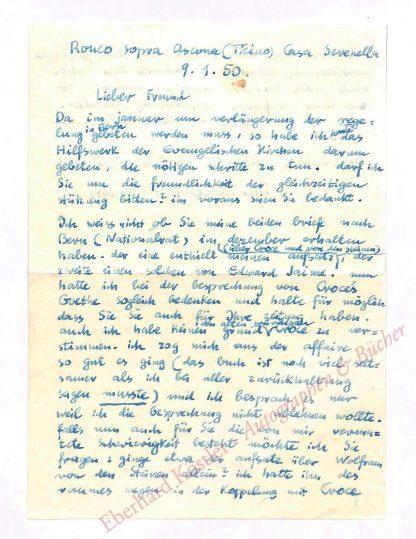 Ronco sopra Ascona (Ticino) Casa Severella
9.1.50.
Lieber Freund
Da im januar um verlängerung der rege-
lung in Bern gebeten werden muss, so habe ich das
Hilfswerk der Evangelischen Kirchen darum
gebeten, die nötigen schritte zu tun. darf ich
Sie um die freundlichkeit der gleichzeitigen
stützung bitten? im voraus seien Sie bedankt.
Ich weiss nicht ob Sie meine beiden briefe nach
Bern (Nationalrat) im dezember erhalten
haben. der eine enthielt meinen aufsatz (über Croce und von den Steinen), der
zweite einen solchen von Edward Jaime. nun
hatte ich bei der besprechung von Croces
Goethe sogleich bedenken und halte für möglich
dass Sie sie auch für Ihre zeitung haben.
auch ich habe keinen grund den alten Croce zu ver-
stimmen. ich zog mich aus der affaire
so gut es ging (das buch ist noch viel selt-
samer als ich bei aller zurückhaltung
sagen musste) und ich besprach es nur
weil ich die besprechung nicht ablehnen wollte.
falls nun auch für Sie die von mir vermu-
tete schwierigkeit besteht möchte ich Sie
fragen: ginge etwa der aufsatz über Wolfram
von den Steinen allein? ich hatte ihn des
raumes wegen in der Koppelung mit Croce
Eberhard Köstler - Autographen & Bücher